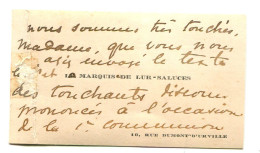 nous sommes très touchés,
Madame, que vous nous
ayez envoyé le texte
MARQUIS DE LUR-SALUCES
des touchants discours
prononcés à l'occasion
de la 1re communion
16, RUE DUMONT-D'URVILLE